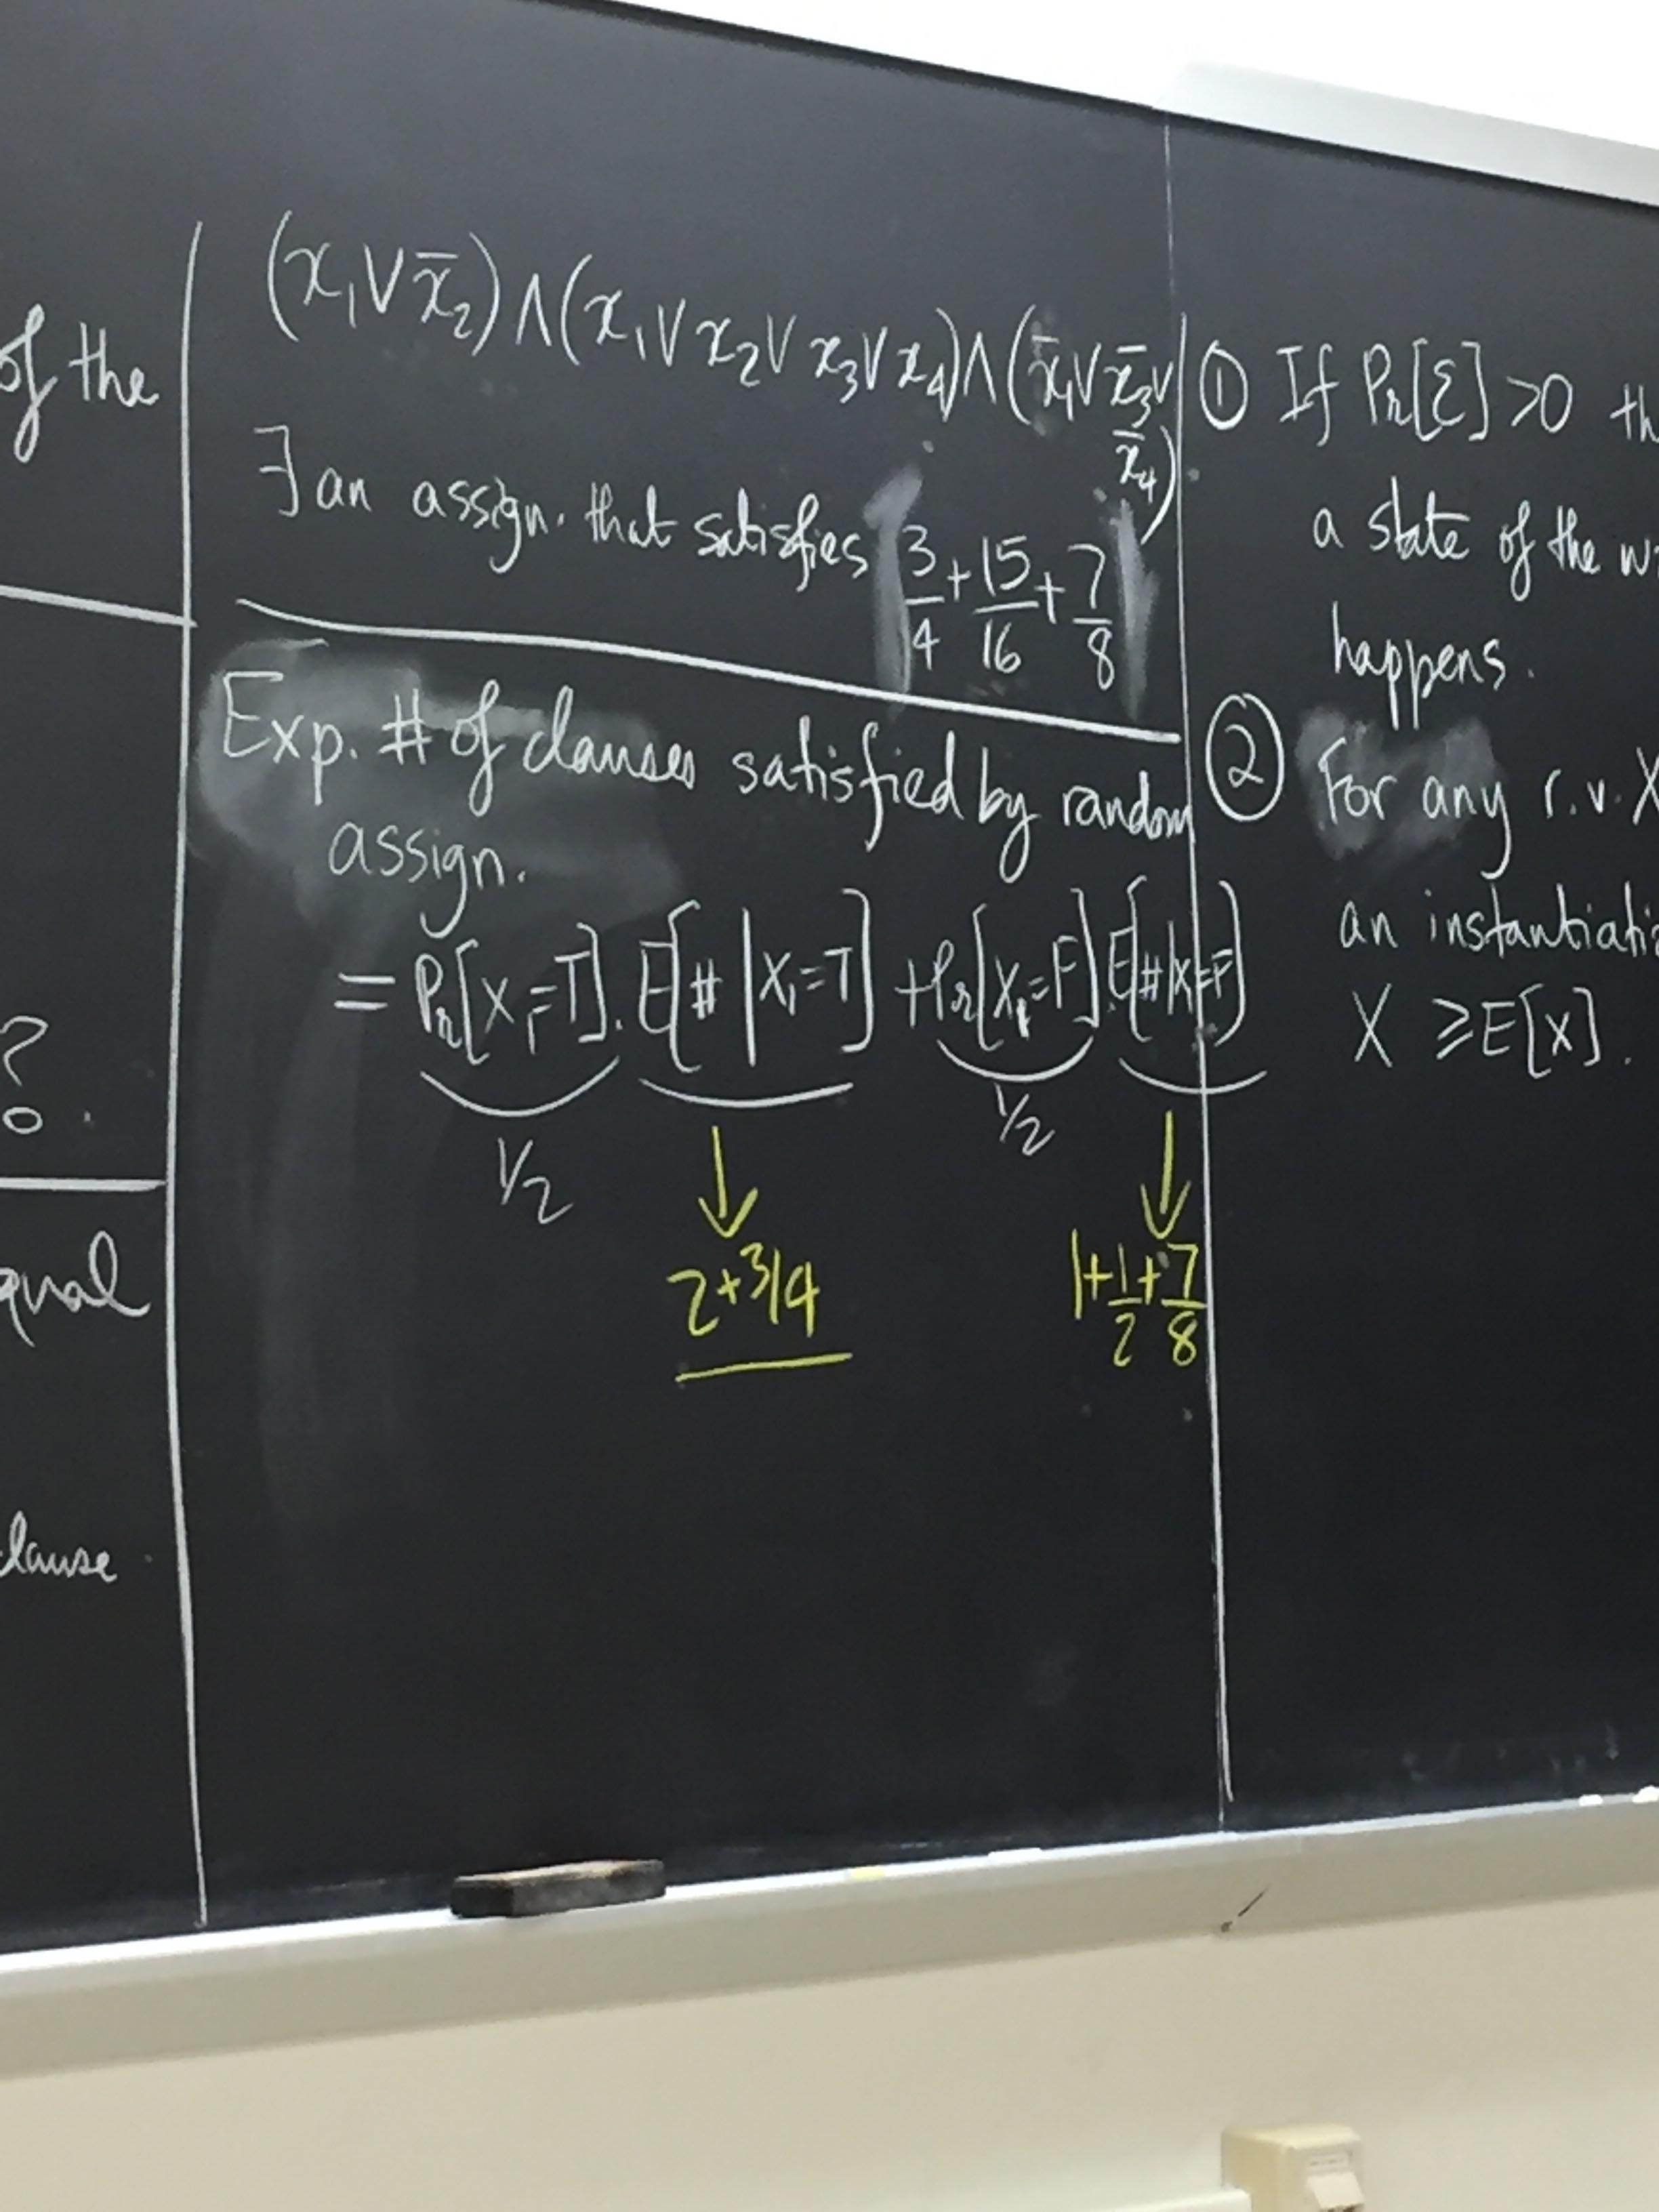 of the
?
qual
clause
(x₁ ∨ x̄₂) ∧ (x₁ ∨ x₂ ∨ x₃ ∨ x₄) ∧ (x̄₁ ∨ x̄₃ ∨
x̄₄)
∃ an assign. that satisfies 3/4 + 15/16 + 7/8
Exp. # of clauses satisfied by random
assign.
= Pr[X₁=T] . E[# | X₁=T] + Pr[X₁=F] . E[# | X₁=F]
1/2 1/2
↓ ↓
2+3/4 1+1/2+7/8
① If Pr[ℰ] >0 th
a state of the w
happens.
② For any r.v. X
an instantiati
X ≥ E[X].